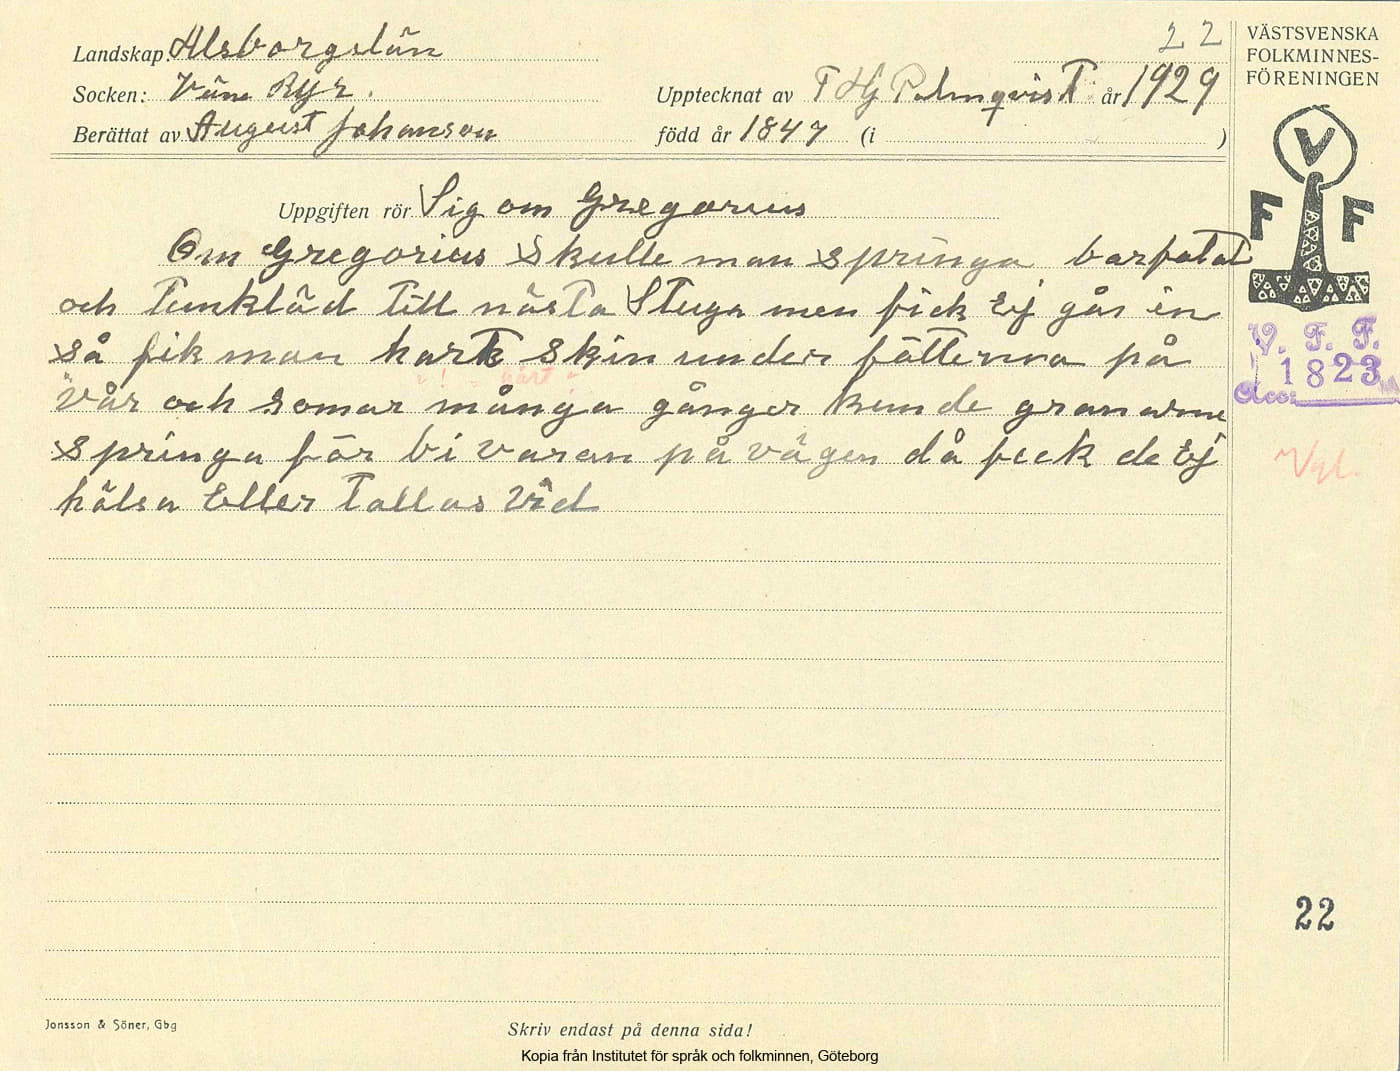 22
VÄSTSVENSKA
FOLKMINNES-
FÖRENINGEN
Landskap: Älsborgslän
Socken: Väne Ryr.
Upptecknat av T Hj Palmqvist år 1929
Berättat av August Johanson
född år 1847 (i )
V
F F
Uppgiften rör Sig om Gregorius
Om Gregorius skulle man springa barfotat
och tunkläd till nästa Stuga men fick Ej går in
så fik man hart skin under fötterna på
hårt
vår och somar många gånger kunde granarne
springa för bi varan på vägen då fick de Ej
hälsa Eller tallas vid
V. F. F.
1823
Acc:
Vgl.
22
Jonsson & Söner, Gbg
Skriv endast på denna sida!
Kopia från Institutet för språk och folkminnen, Göteborg